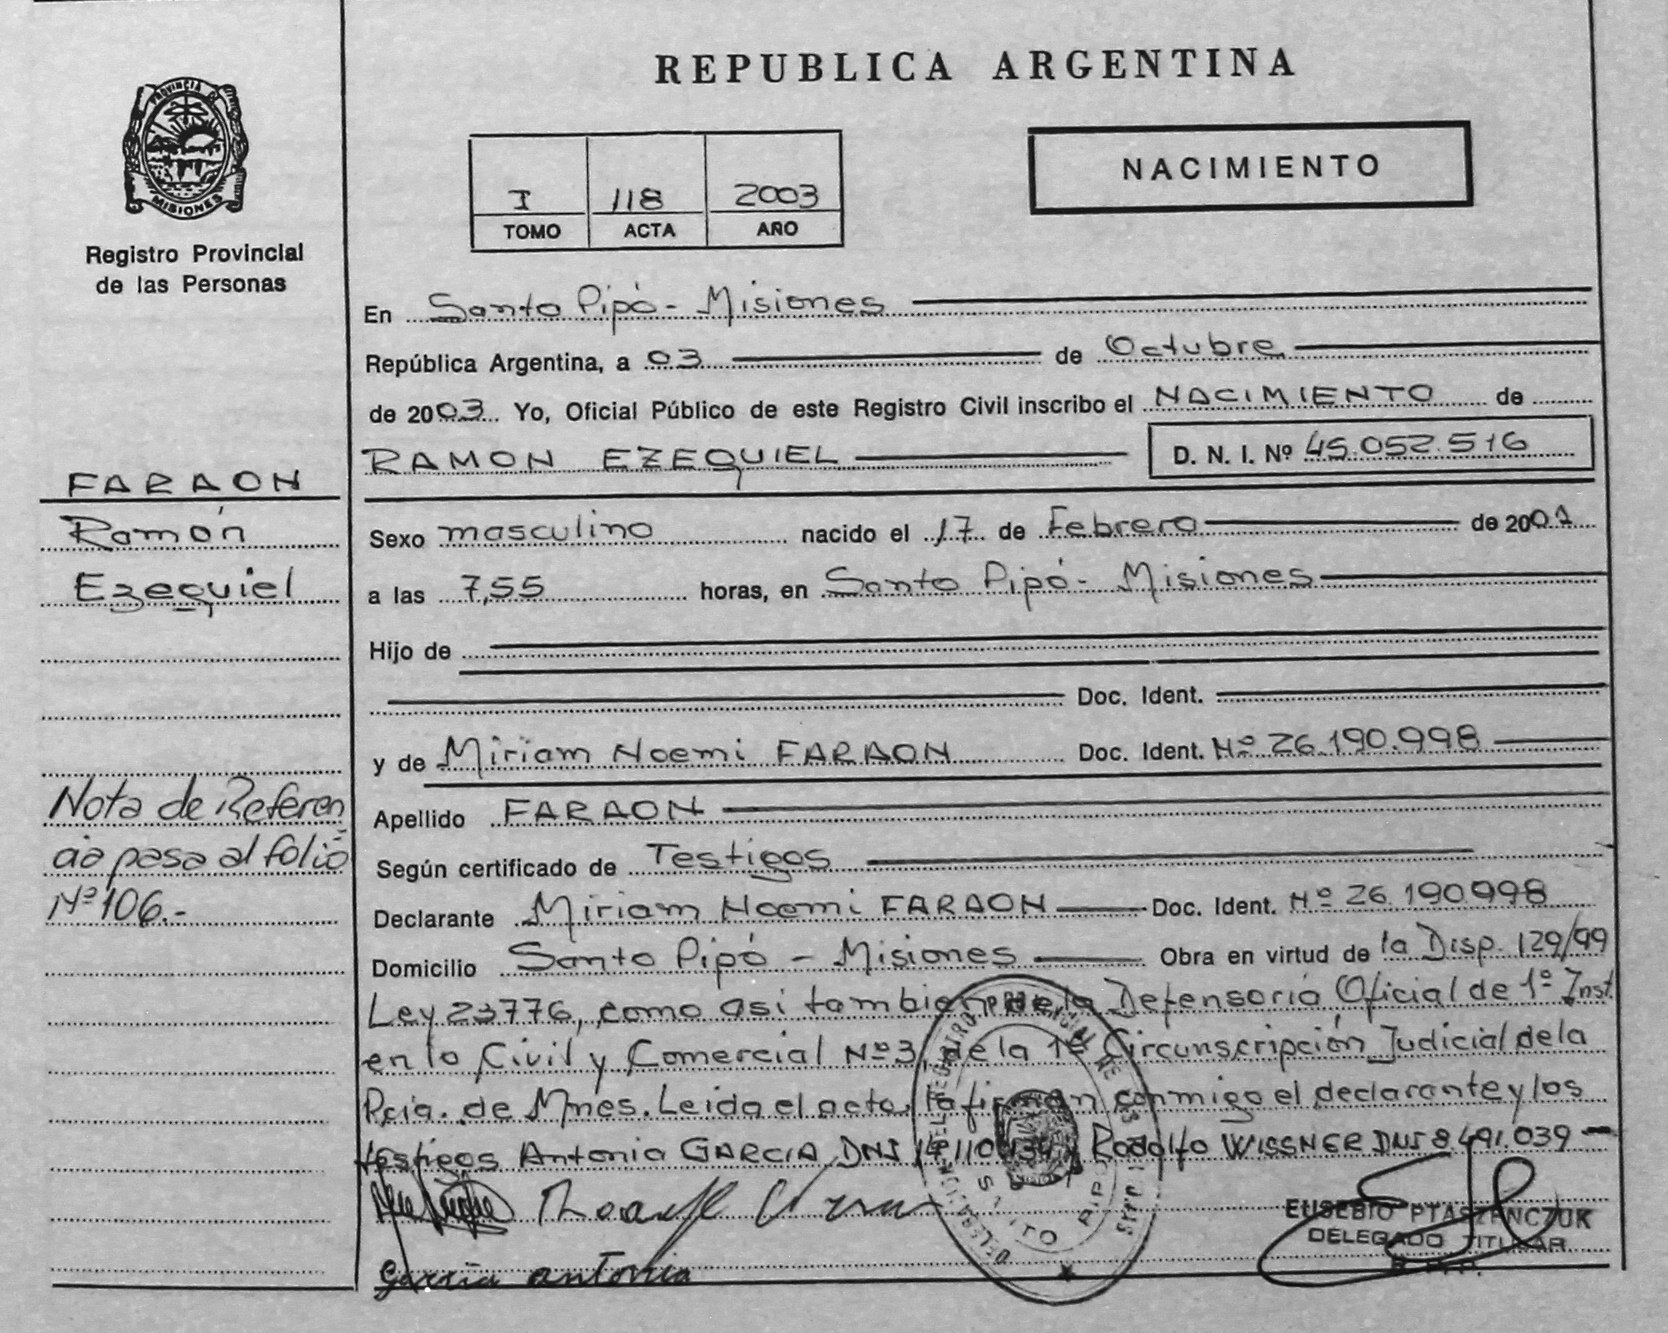 REPUBLICA ARGENTINA
PROVINCIA DE
MISIONES
Registro Provincial
de las Personas
NACIMIENTO
I 118 2003
TOMO ACTA AÑO
En Santo Pipó - Misiones
República Argentina, a 03 de Octubre
de 2003 Yo, Oficial Público de este Registro Civil inscribo el NACIMIENTO de
RAMON EZEQUIEL D. N. I. Nº 45.052.516
FARAON
Ramón
Ezequiel
Sexo masculino nacido el 17 de Febrero de 2001
a las 7,55 horas, en Santo Pipó - Misiones
Hijo de
Doc. Ident.
y de Miriam Noemi FARAON Doc. Ident. Nº 26.190.998
Nota de Referen
cia pasa al folio
Nº 106.-
Apellido FARAON
Según certificado de Testigos
Declarante Miriam Noemi FARAON Doc. Ident. Nº 26.190.998
Domicilio Santo Pipó - Misiones Obra en virtud de la Disp. 129/99
Ley 23776, como asi tambien de la Defensoria Oficial de 1º Inst.
en lo Civil y Comercial Nº 3, de la 1º Circunscripción Judicial de la
Pcia. de Mnes. Leida el acta, la firman conmigo el declarante y los
testigos Antonia GARCIA DNI y Rodolfo WISSNER DNI 8.491.039
EUSEBIO PTASZENCZUK
DELEGADO TITULAR
R. P. P.
Garcia antonia